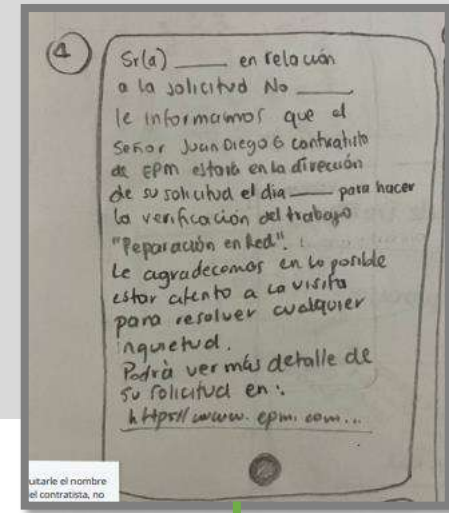 4
Sr(a) _____ en relación
a la solicitud No _____
le informamos que el
Señor Juan Diego G contratista
de EPM estará en la dirección
de su solicitud el dia _____ para hacer
la verificación del trabajo
"Reparación en Red".
Le agradecemos en lo posible
estar atento a la visita
para resolver cualquier
inquietud.
Podrá ver más detalle de
su solicitud en:
https// www. epm. com...
uitarle el nombre
el contratista, no